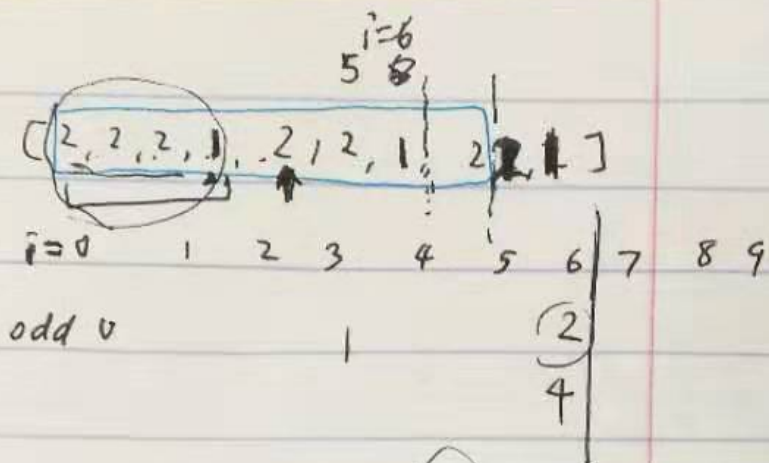 i=6
5
[2, 2, 2, 1, 2, 2, 1, 2 2, 1]
i=0 1 2 3 4 5 6 7 8 9
odd 0 1 2
4